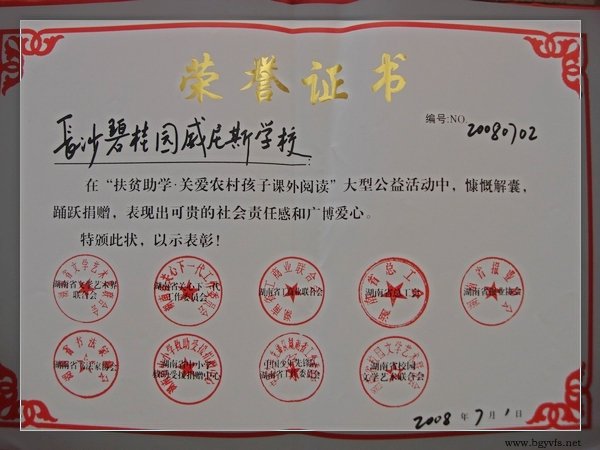 荣誉证书
编号:NO.20080702
长沙碧桂园威尼斯学校
在“扶贫助学·关爱农村孩子课外阅读”大型公益活动中，慷慨解囊，
踊跃捐赠，表现出可贵的社会责任感和广博爱心。
特颁此状，以示表彰！
湖南省文学艺术界
联合会
湖南省关心下一代
工作委员会
湖南省工商业联合会
湖南省总工会
湖南省书法家协会
湖南省中小学
救助受援捐赠中心
中国少年先锋队
湖南省工作委员会
湖南省校园
文学艺术联合会
2008年7月1日
www.bgyvfs.net